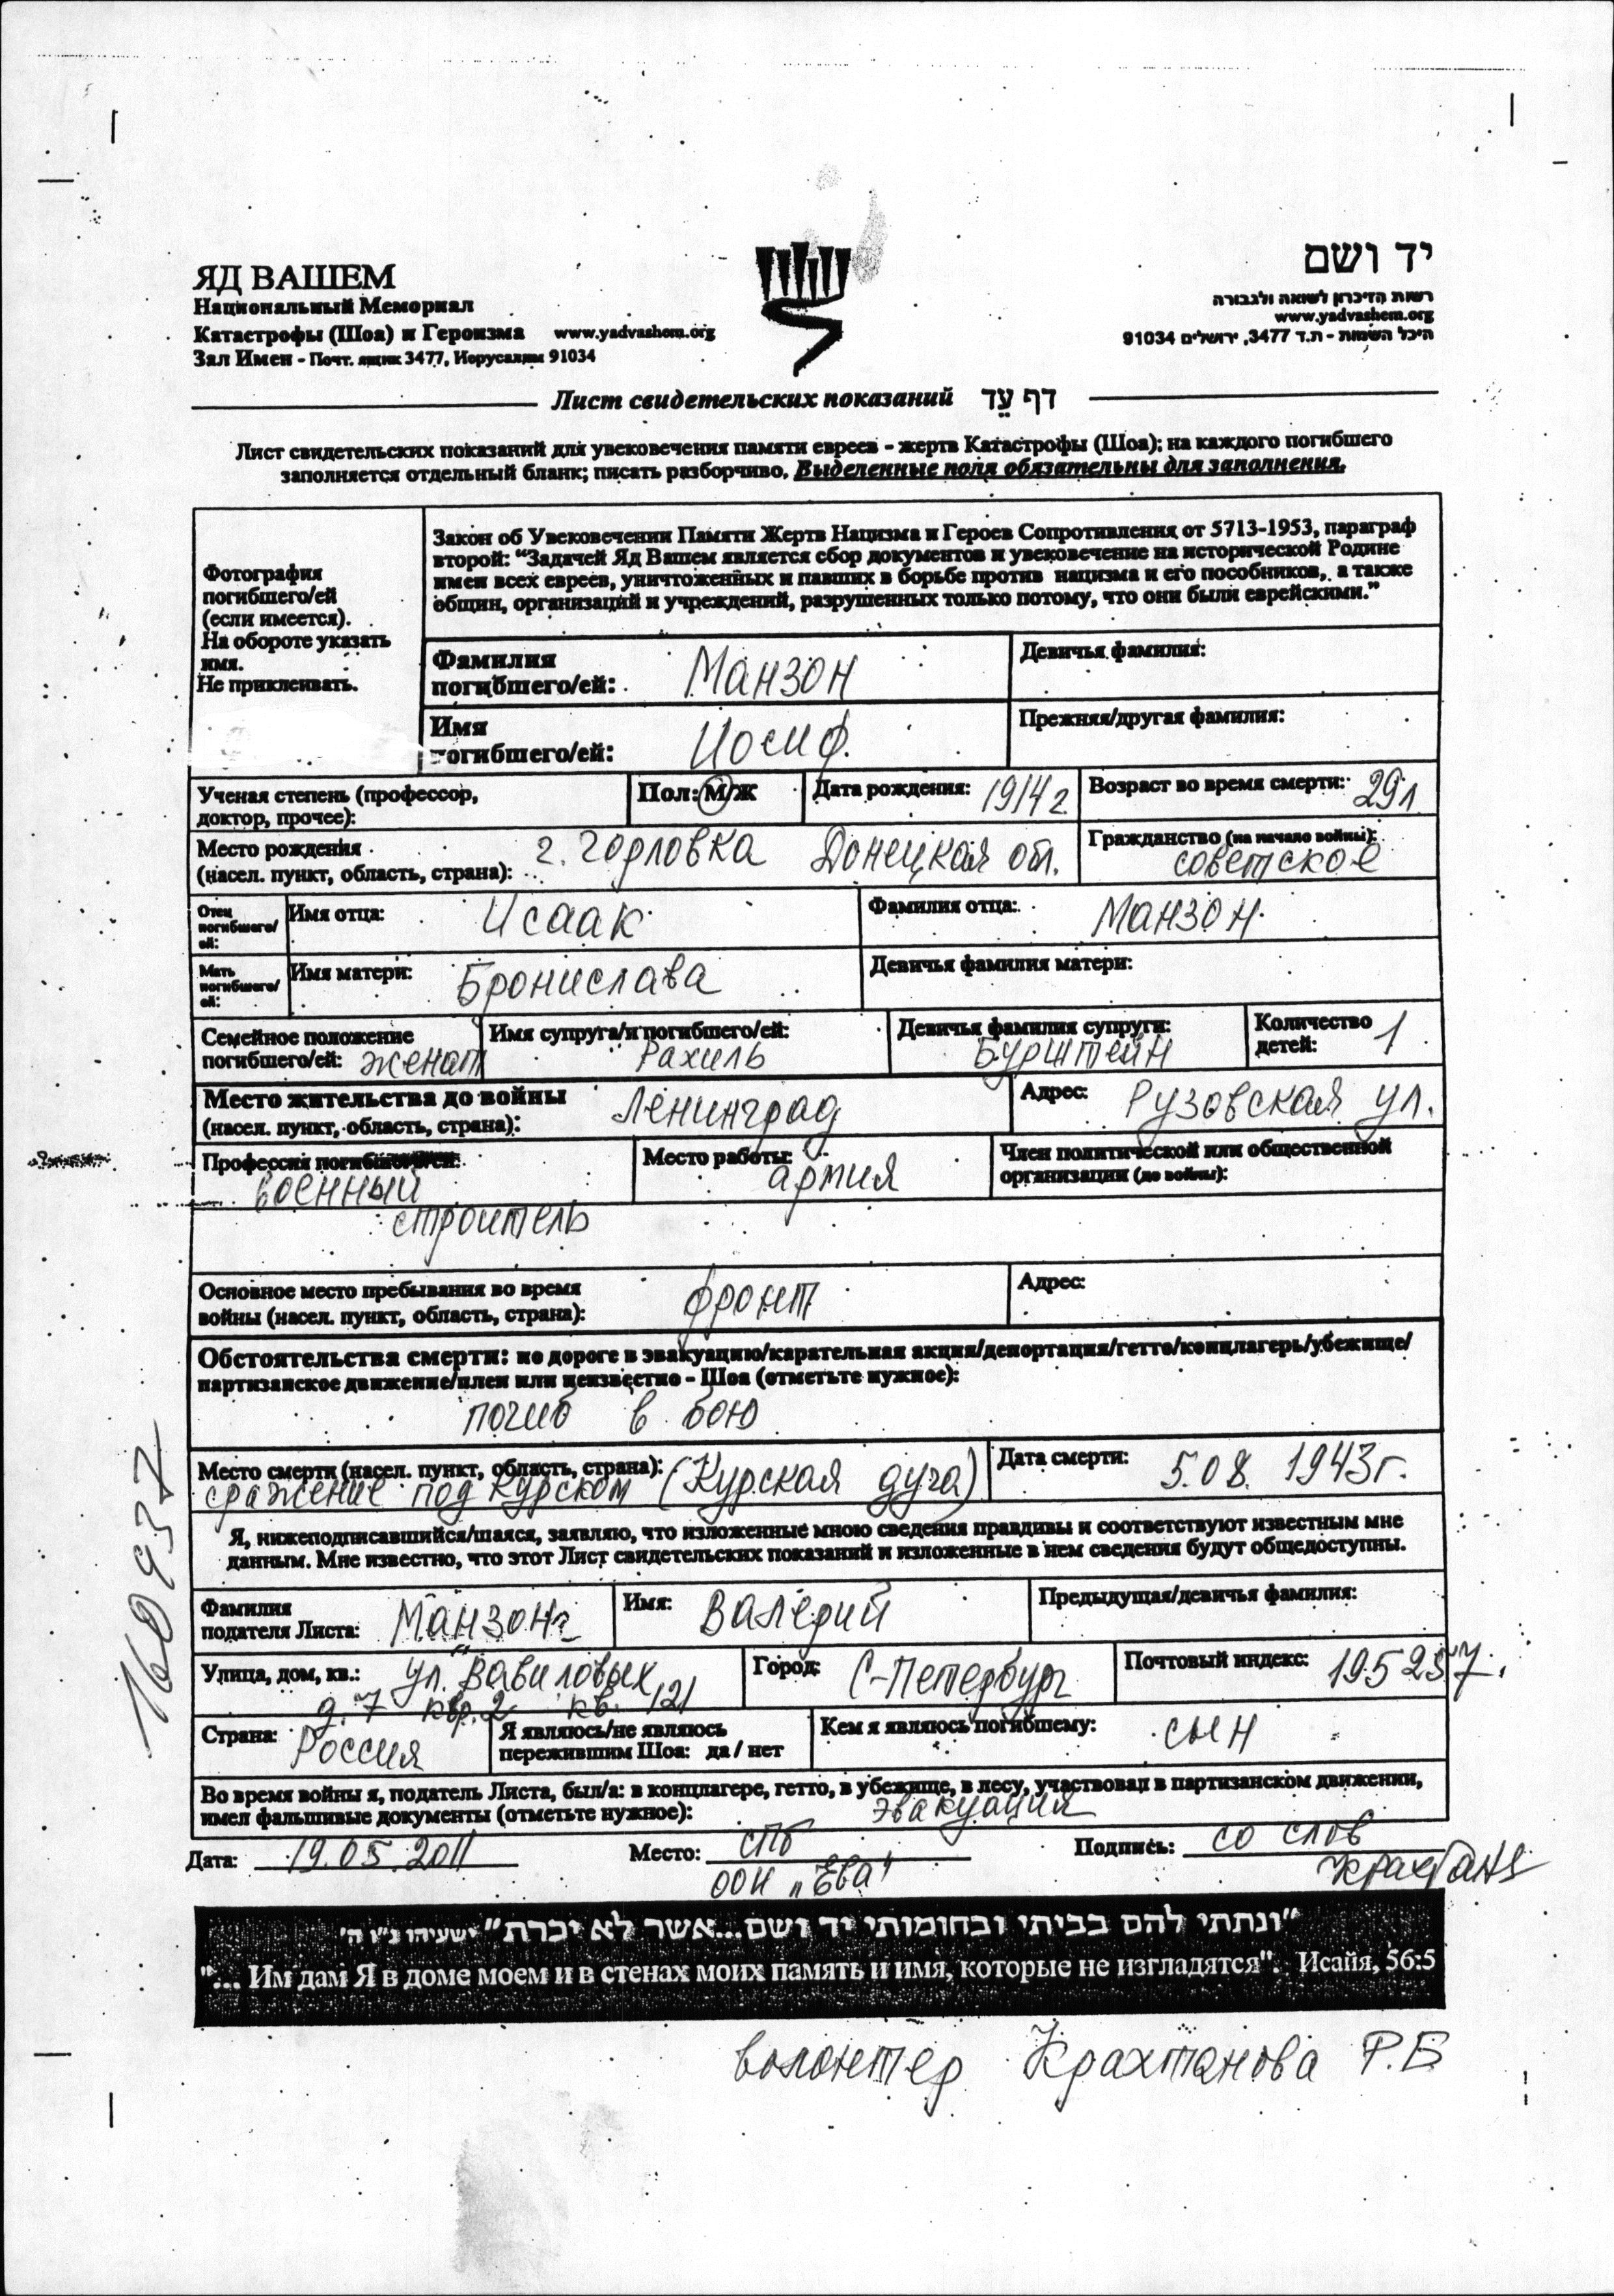 ЯД ВАШЕМ
Национальный Мемориал
Катастрофы (Шоа) и Героизма www.yadvashem.org
Зал Имен - Почт. ящик 3477, Иерусалим 91034
יד ושם
רשות הזיכרון לשואה ולגבורה
www.yadvashem.org
היכל השמות - ת.ד 3477, ירושלים 91034
Лист свидетельских показаний דף עֵד
Лист свидетельских показаний для увековечения памяти евреев - жертв Катастрофы (Шоа); на каждого погибшего
заполняется отдельный бланк; писать разборчиво. Выделенные поля обязательны для заполнения.
Фотография
погибшего/ей
(если имеется).
На обороте указать
имя.
Не приклеивать.
Закон об Увековечении Памяти Жертв Нацизма и Героев Сопротивления от 5713-1953, параграф
второй: “Задачей Яд Вашем является сбор документов и увековечение на исторической Родине
имен всех евреев, уничтоженных и павших в борьбе против нацизма и его пособников, а также
общин, организаций и учреждений, разрушенных только потому, что они были еврейскими.”
Фамилия
погибшего/ей: Манзон
Девичья фамилия:
Имя
погибшего/ей: Иосиф
Прежняя/другая фамилия:
Ученая степень (профессор,
доктор, прочее):
Пол: М/Ж
Дата рождения: 1914г
Возраст во время смерти: 29л
Место рождения
(насел. пункт, область, страна): г. Горловка Донецкая обл.
Гражданство (на начало войны):
советское
Отец
погибшего/
ей:
Имя отца: Исаак
Фамилия отца: Манзон
Мать
погибшего/
ей:
Имя матери: Бронислава
Девичья фамилия матери:
Семейное положение
погибшего/ей: женат
Имя супруга/и погибшего/ей:
Рахиль
Девичья фамилия супруги:
Бурштейн
Количество
детей: 1
Место жительства до войны
(насел. пункт, область, страна): Ленинград
Адрес: Рузовская ул.
Профессия погибшего/ей:
военный
строитель
Место работы:
армия
Член политической или общественной
организации (до войны):
Основное место пребывания во время
войны (насел. пункт, область, страна): фронт
Адрес:
Обстоятельства смерти: по дороге в эвакуацию/карательная акция/депортация/гетто/концлагерь/убежище/
партизанское движение/плен или неизвестно - Шоа (отметьте нужное):
погиб в бою
Место смерти (насел. пункт, область, страна):
сражение под Курском (Курская дуга)
Дата смерти: 5.08. 1943г.
Я, нижеподписавшийся/шаяся, заявляю, что изложенные мною сведения правдивы и соответствуют известным мне
данным. Мне известно, что этот Лист свидетельских показаний и изложенные в нем сведения будут общедоступны.
Фамилия
подателя Листа: Манзон
Имя: Валерий
Предыдущая/девичья фамилия:
Улица, дом, кв.: ул. Вавиловых
д. 7 кор. 2 кв. 121
Город: С-Петербург
Почтовый индекс: 195257.
Страна: Россия
Я являюсь/не являюсь
пережившим Шоа: да / нет
Кем я являюсь погибшему: сын
Во время войны я, податель Листа, был/а: в концлагере, гетто, в убежище, в лесу, участвовал в партизанском движении,
имел фальшивые документы (отметьте нужное): эвакуация
Дата: 19.05.2011
Место: СПб
ООИ „Ева"
Подпись: со слов
160937
"ונתתי להם בביתי ובחומותי יד ושם...אשר לא יכרת" ישעיהו נ"ו ה'
"... Им дам Я в доме моем и в стенах моих память и имя, которые не изгладятся". Исайя, 56:5
волонтер Крахтанова Р.Б